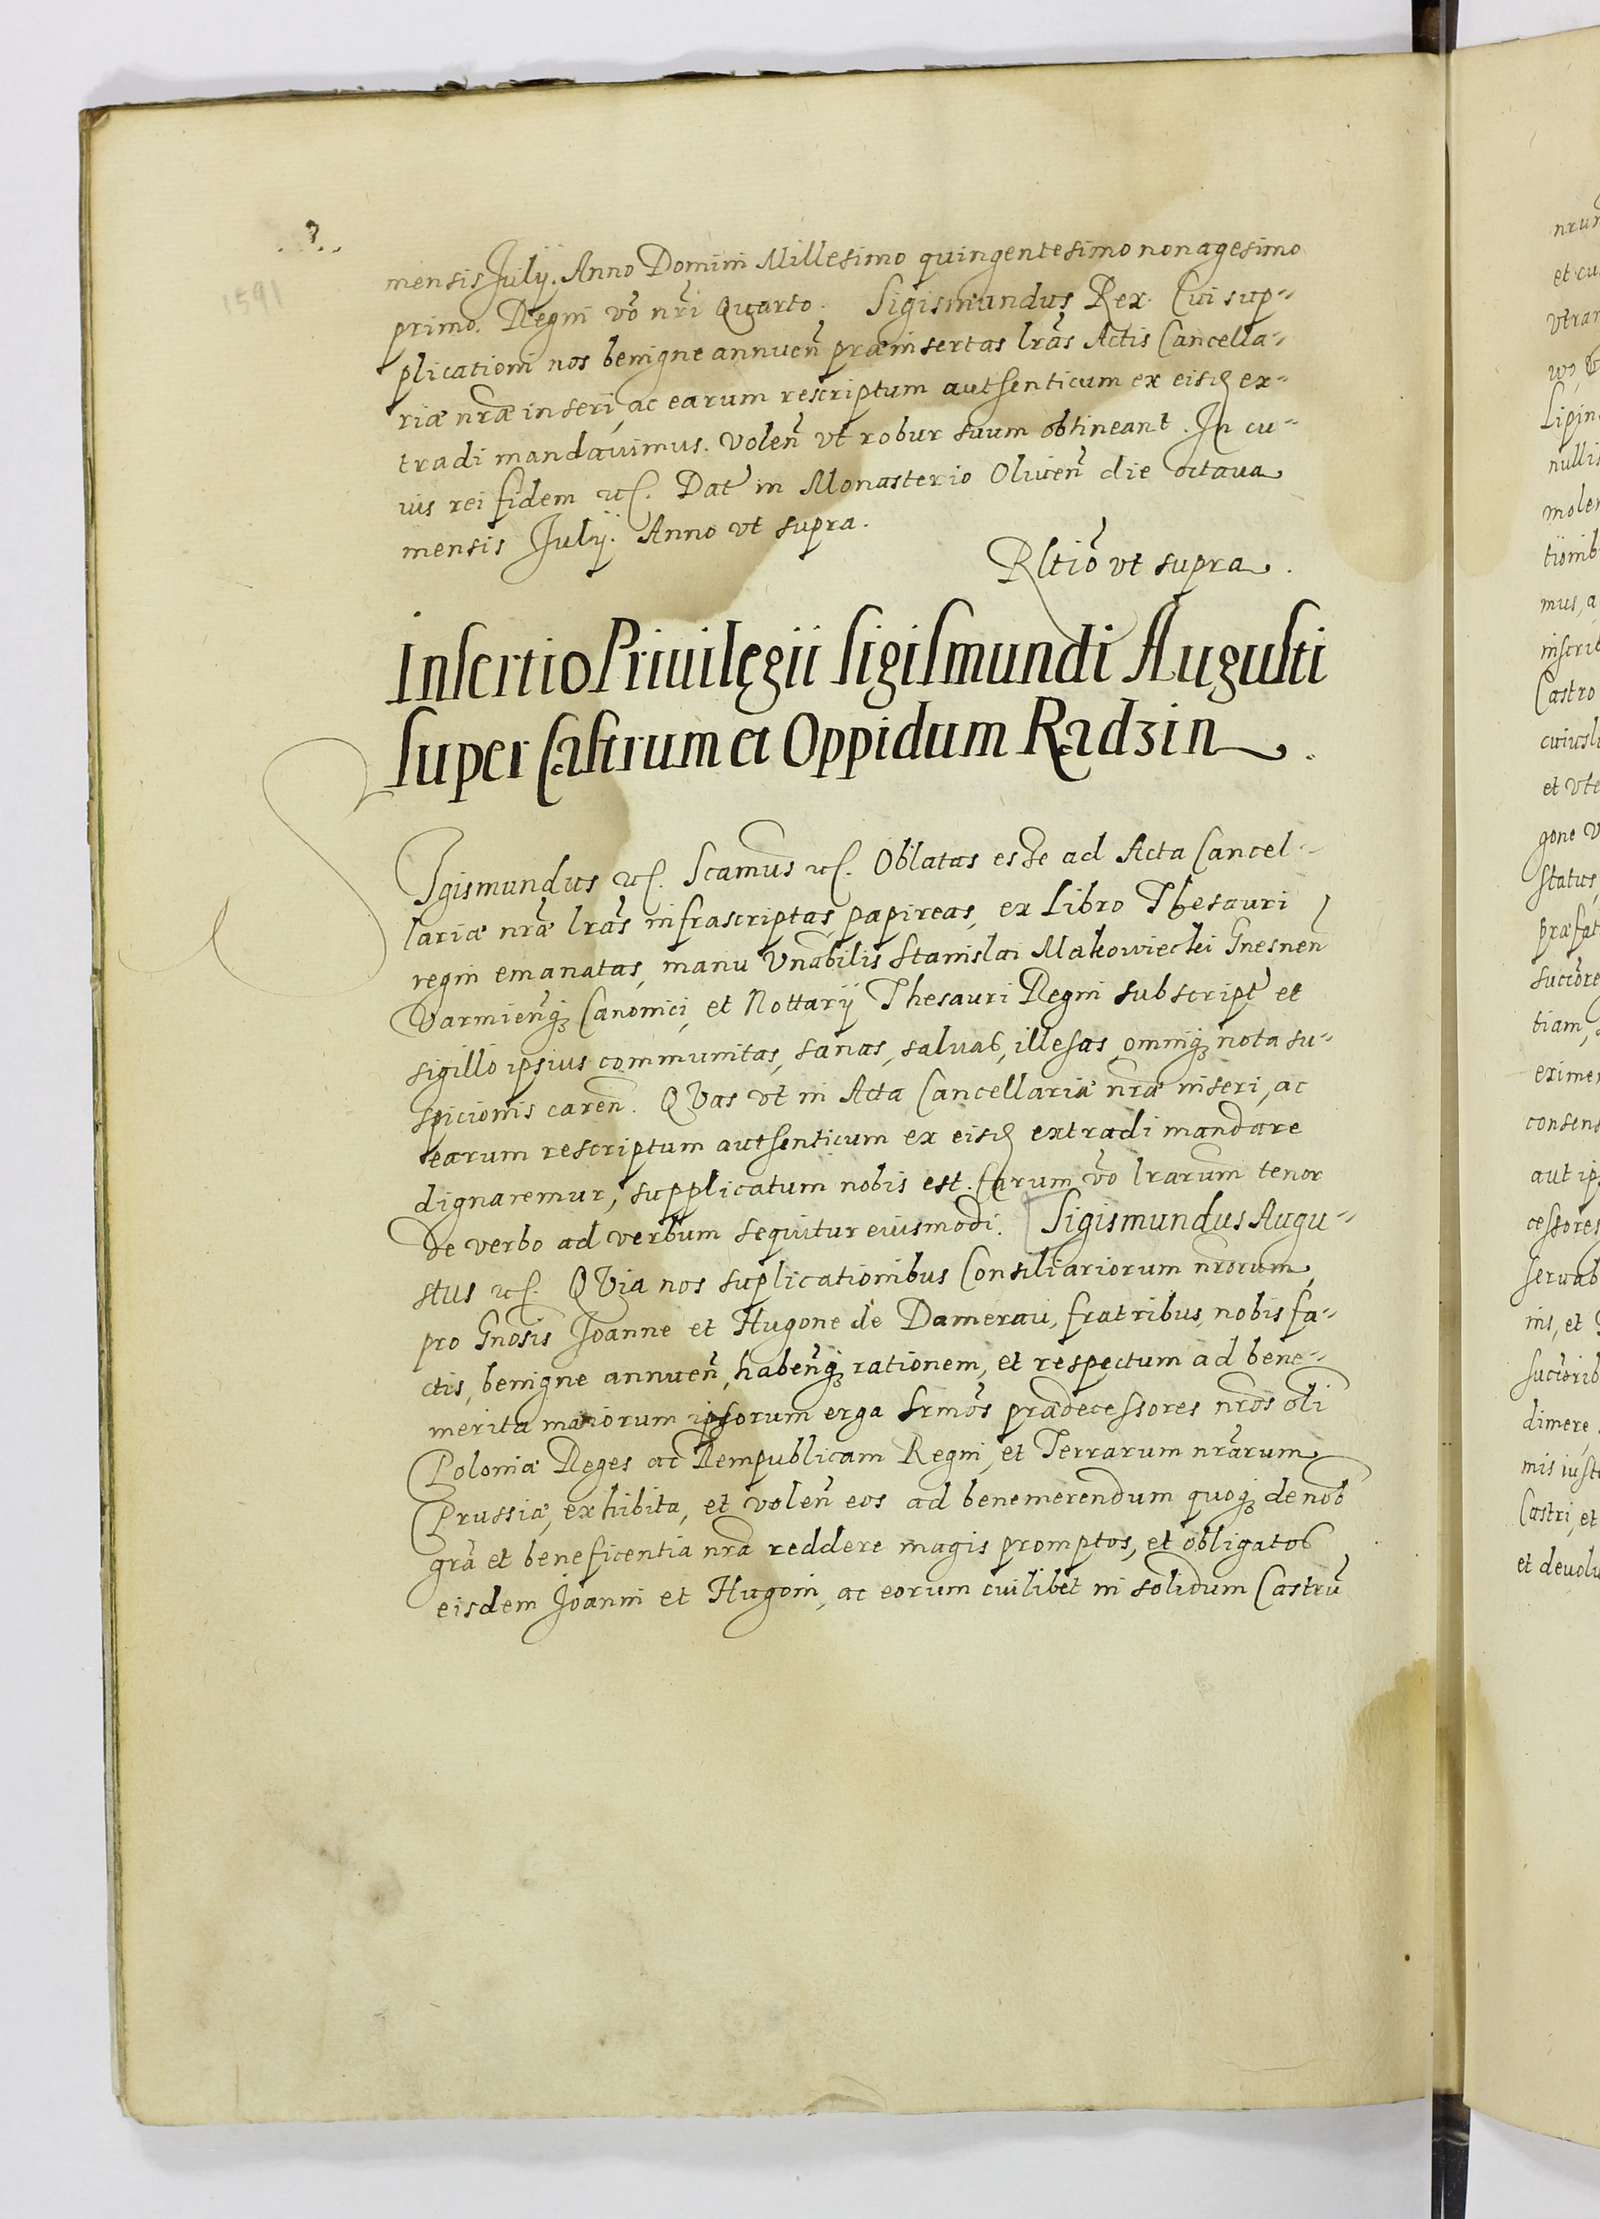 1591
mensis Julij. Anno Domini Millesimo quingentesimo nonagesimo
primo. Regni vō nrī Quarto. Sigismundus Rex. Cui sup=
plicationi nos benigne annuen̄ præinsertas lrās Actis Cancella=
riæ nræ inseri, ac earum rescriptum autsenticum ex eisd ex=
tradi mandavimus. volen̄ vt robur suum obtineant. In cu=
ius rei fidem etc. Dat in Monasterio Oliven̄ die octava
mensis Julij. Anno vt supra.
Rltiō vt supra.
Insertio Privilegii Sigismundi Augusti
super Castrum et Oppidum Radzin.
Sigismundus etc. Scamus etc. Oblatas esse ad Acta Cancel=
lariæ nræ lrās infrascriptas papireas, ex Libro Thesauri
regni emanatas, manu Vnābilis Stanislai Makowiecki Gnesnen̄
Varmien̄q3 Canonici, et Nottarij Thesauri Regni subscript et
sigillo ipsius communitas, sanas, salvas, illesas, omniq3 nota su=
spicionis caren̄. QVas vt in Acta Cancellariæ nræ inseri, ac
earum rescriptum autsenticum ex eisd extradi mandare
dignaremur, supplicatum nobis est. Earum vō lrārum tenor
de verbo ad verbum sequitur eiusmodi. Sigismundus Augu=
stus etc. QVia nos suplicationibus Consiliariorum nrōrum,
pro Gnōsis Joanne et Hugone de Damerau, fratribus, nobis fa=
ctis, benigne annuen̄, haben̄q3 rationem, et respectum ad bene=
merita maiorum ipsorum erga Srmōs prædecessores nrōs oli
Poloniæ Reges ac Rempublicam Regni, et Terrarum nrārum
Prussiæ, exhibita, et volen̄ eos ad benemerendum quoq3 de nob
grā et beneficentia nrā reddere magis promptos, et obligatos
eisdem Joanni et Hugoni, ac eorum cuilibet in solidum Castrū
et cu
Lipin
nullis
molen
mus, a
Castro
et vte
gone v
status,
præfat
tiam,
eximen
consens
aut ip
cessores
servab
nis, et
dimere,
mis iust
Castri, et
et devolu